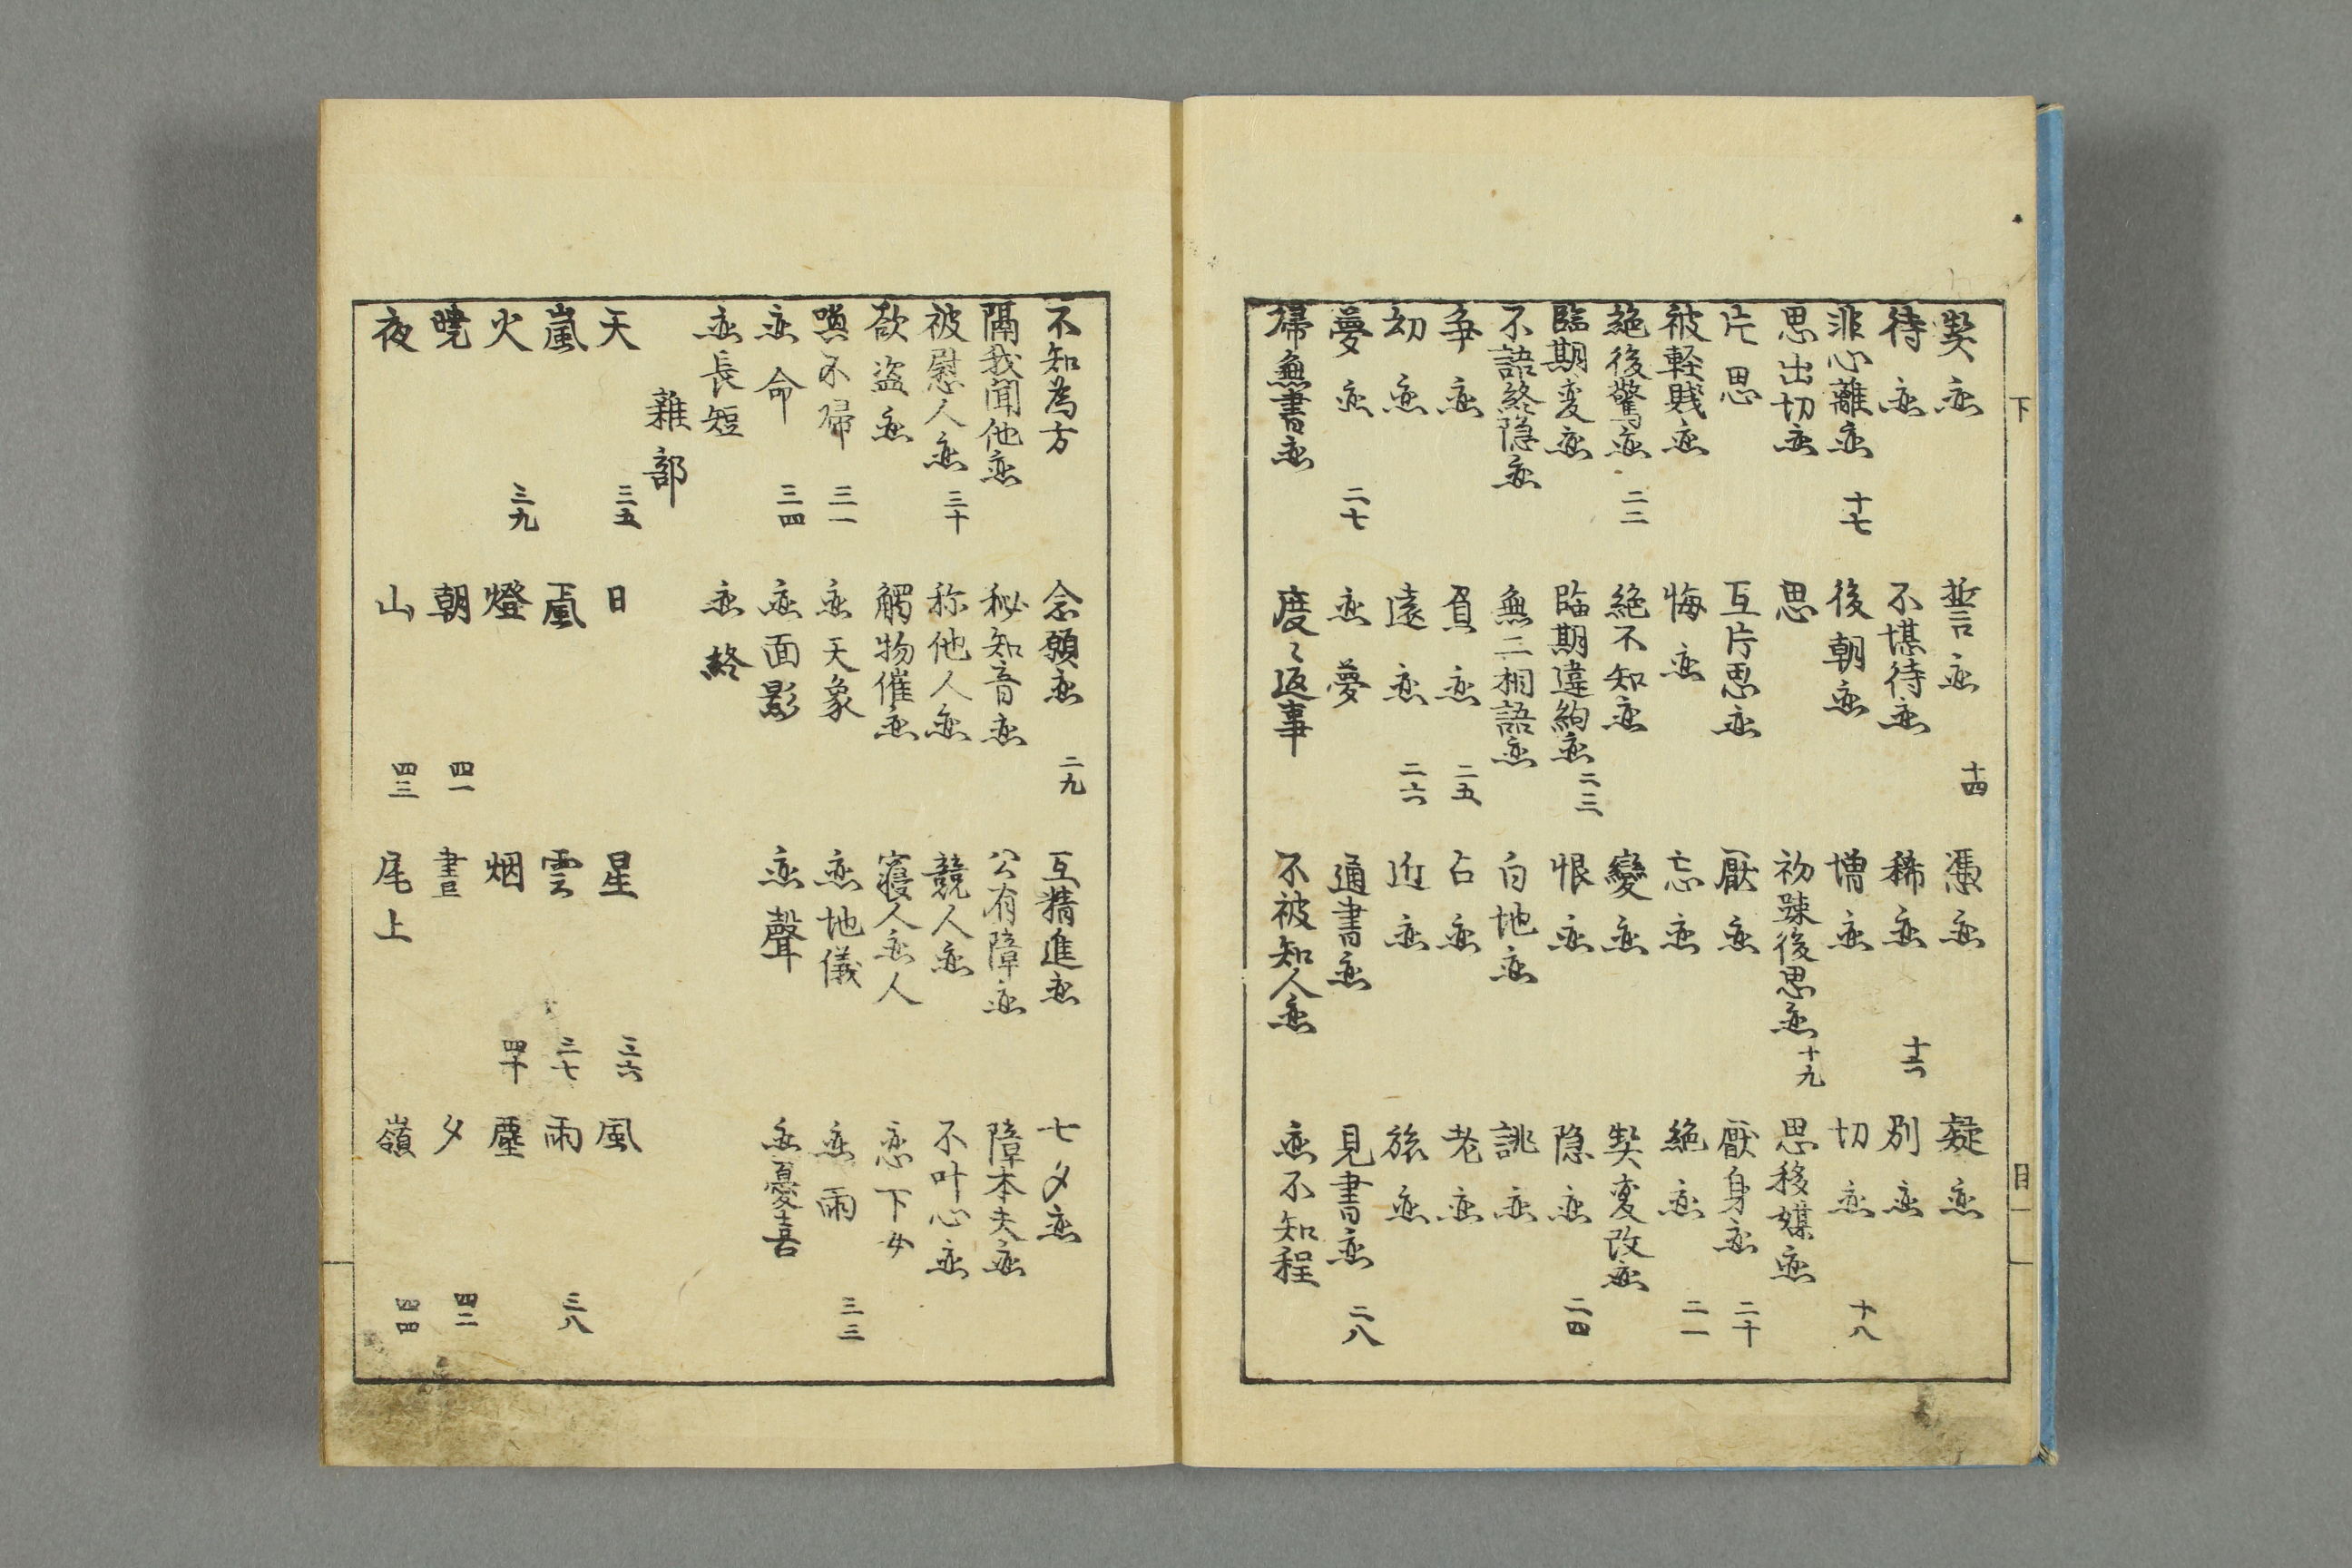 契恋 誓恋 十四 憑恋 疑恋
待恋 不堪待恋 稀恋 十六 別恋
非心離恋 十七 後朝恋 増恋 切恋 十八
思出切恋 思 初疎後思恋 十九 思移媒恋
片思 互片思恋 厭恋 厭身恋 二十
被軽賎恋 悔恋 忘恋 絶恋 二一
絶後驚恋 二二 絶不知恋 變恋 契変改恋
臨期変恋 臨期違約恋 二三 恨恋 隠恋 二四
不語終隠恋 無二相語恋 白地恋 誂恋
争恋 負恋 二五 占恋 老恋
幼恋 遠恋 二六 近恋 旅恋
夢恋 二七 恋夢 通書恋 見書恋 二八
帰無書恋 度〻返事 不被知人恋 恋不知程
下
目一
不知為方 念願恋 二九 互精進恋 七夕恋
隔我聞他恋 秘知音恋 公有障恋 障本夫恋
被慰人恋 三十 称他人恋 競人恋 不叶心恋
欲盗恋 觸物催恋 寝人恋人 恋下女
嗔不帰 三一 恋天象 恋地儀 恋雨 三三
恋命 三四 恋面影 恋聲 恋憂喜
恋長短 恋終
雜部
天 三五 日 星 三六 風
嵐 颪 雲 三七 雨 三八
火 三九 燈 烟 四十 塵
曉 朝 四一 晝 夕 四二
夜 山 四三 尾上 嶺 四四